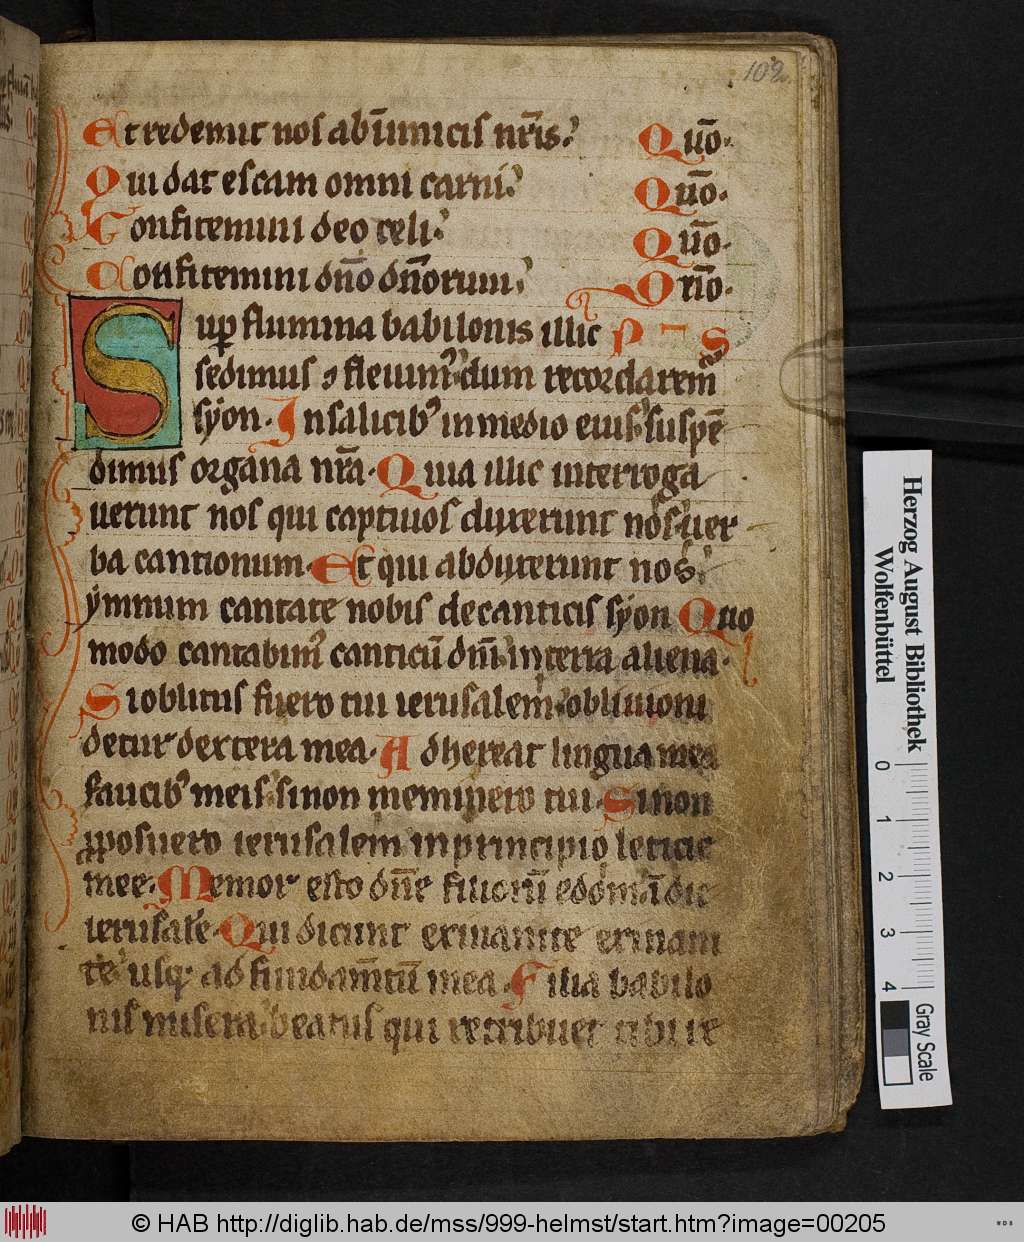 102
Et redemit nos ab inimicis nr̄is. Qūo.
Qui dat escam omni carni. Qūo.
Confitemini deo celi. Qūo.
Confitemini dn̄o dn̄orum. Qr̄io.
Sup flumina babilonis illic P S
sedimus ⁊ fleuim᾿ dum recordarem᾿
syon. In salicib᾿ in medio eius suspē
dimus organa nr̄a. Quia illic interroga
uerunt nos qui captiuos duxerunt nos uer
ba cantionum. Et qui abduxerunt nos
ymnum cantate nobis de canticis syon Quo
modo cantabim᾿ canticū dn̄i in terra aliena.
Si oblitus fuero tui ierusalem obliuioni
detur dextera mea. Adhereat lingua mea
faucib᾿ meis si non meminero tui. Si non
ꝓposuero ierusalem in principio leticie
mee. Memor esto dn̄e filiorū edom ī die
ierusalē. Qui dicunt exinanite exinani
te usq; ad fundam̄tū in ea. Filia babilo
nis misera beatus qui retribuet tibi re
Herzog August Bibliothek
Wolfenbüttel
0 1 2 3 4
Gray Scale
© HAB http://diglib.hab.de/mss/999-helmst/start.htm?image=00205